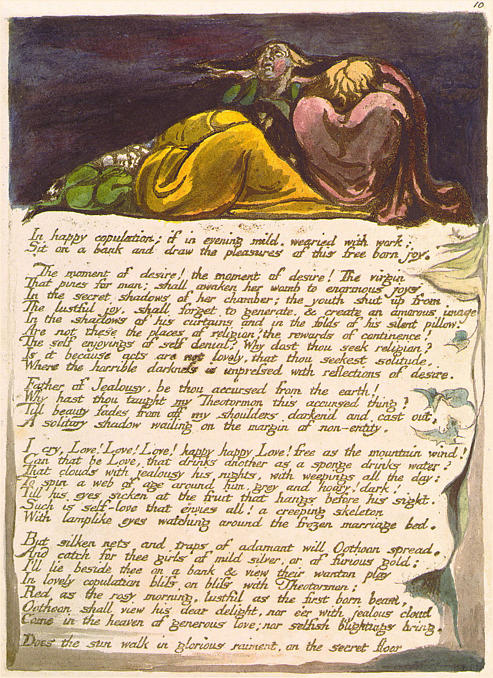 10
In happy copulation; if in evening mild, wearied with work;
Sit on a bank and draw the pleasures of this free born joy.
The moment of desire! the moment of desire! The virgin
That pines for man; shall awaken her womb to enormous joys
In the secret shadows of her chamber; the youth shut up from
The lustful joy, shall forget to generate, & create an amorous image
In the shadows of his curtains and in the folds of his silent pillow.
Are not these the places of religion? the rewards of continence?
The self enjoyings of self denial? Why dost thou seek religion?
Is it because acts are not lovely, that thou seekest solitude,
Where the horrible darkness is impressed with reflections of desire.
Father of Jealousy, be thou accursed from the earth!
Why hast thou taught my Theotormon this accursed thing?
Till beauty fades from off my shoulders darken'd and cast out,
A solitary shadow wailing on the margin of non-entity.
I cry, Love! Love! Love! happy happy Love! free as the mountain wind!
Can that be Love, that drinks another as a sponge drinks water?
That clouds with jealousy his nights, with weepings all the day:
To spin a web of age around him, grey and hoary! dark!
Till his eyes sicken at the fruit that hangs before his sight.
Such is self-love that envies all! a creeping skeleton
With lamplike eyes watching around the frozen marriage bed.
But silken nets and traps of adamant will Oothoon spread,
And catch for thee girls of mild silver, or of furious gold;
I'll lie beside thee on a bank & view their wanton play
In lovely copulation bliss on bliss with Theotormon:
Red as the rosy morning, lustful as the first born beam,
Oothoon shall view his dear delight, nor e'er with jealous cloud
Come in the heaven of generous love; nor selfish blightings bring.
Does the sun walk in glorious raiment, on the secret floor